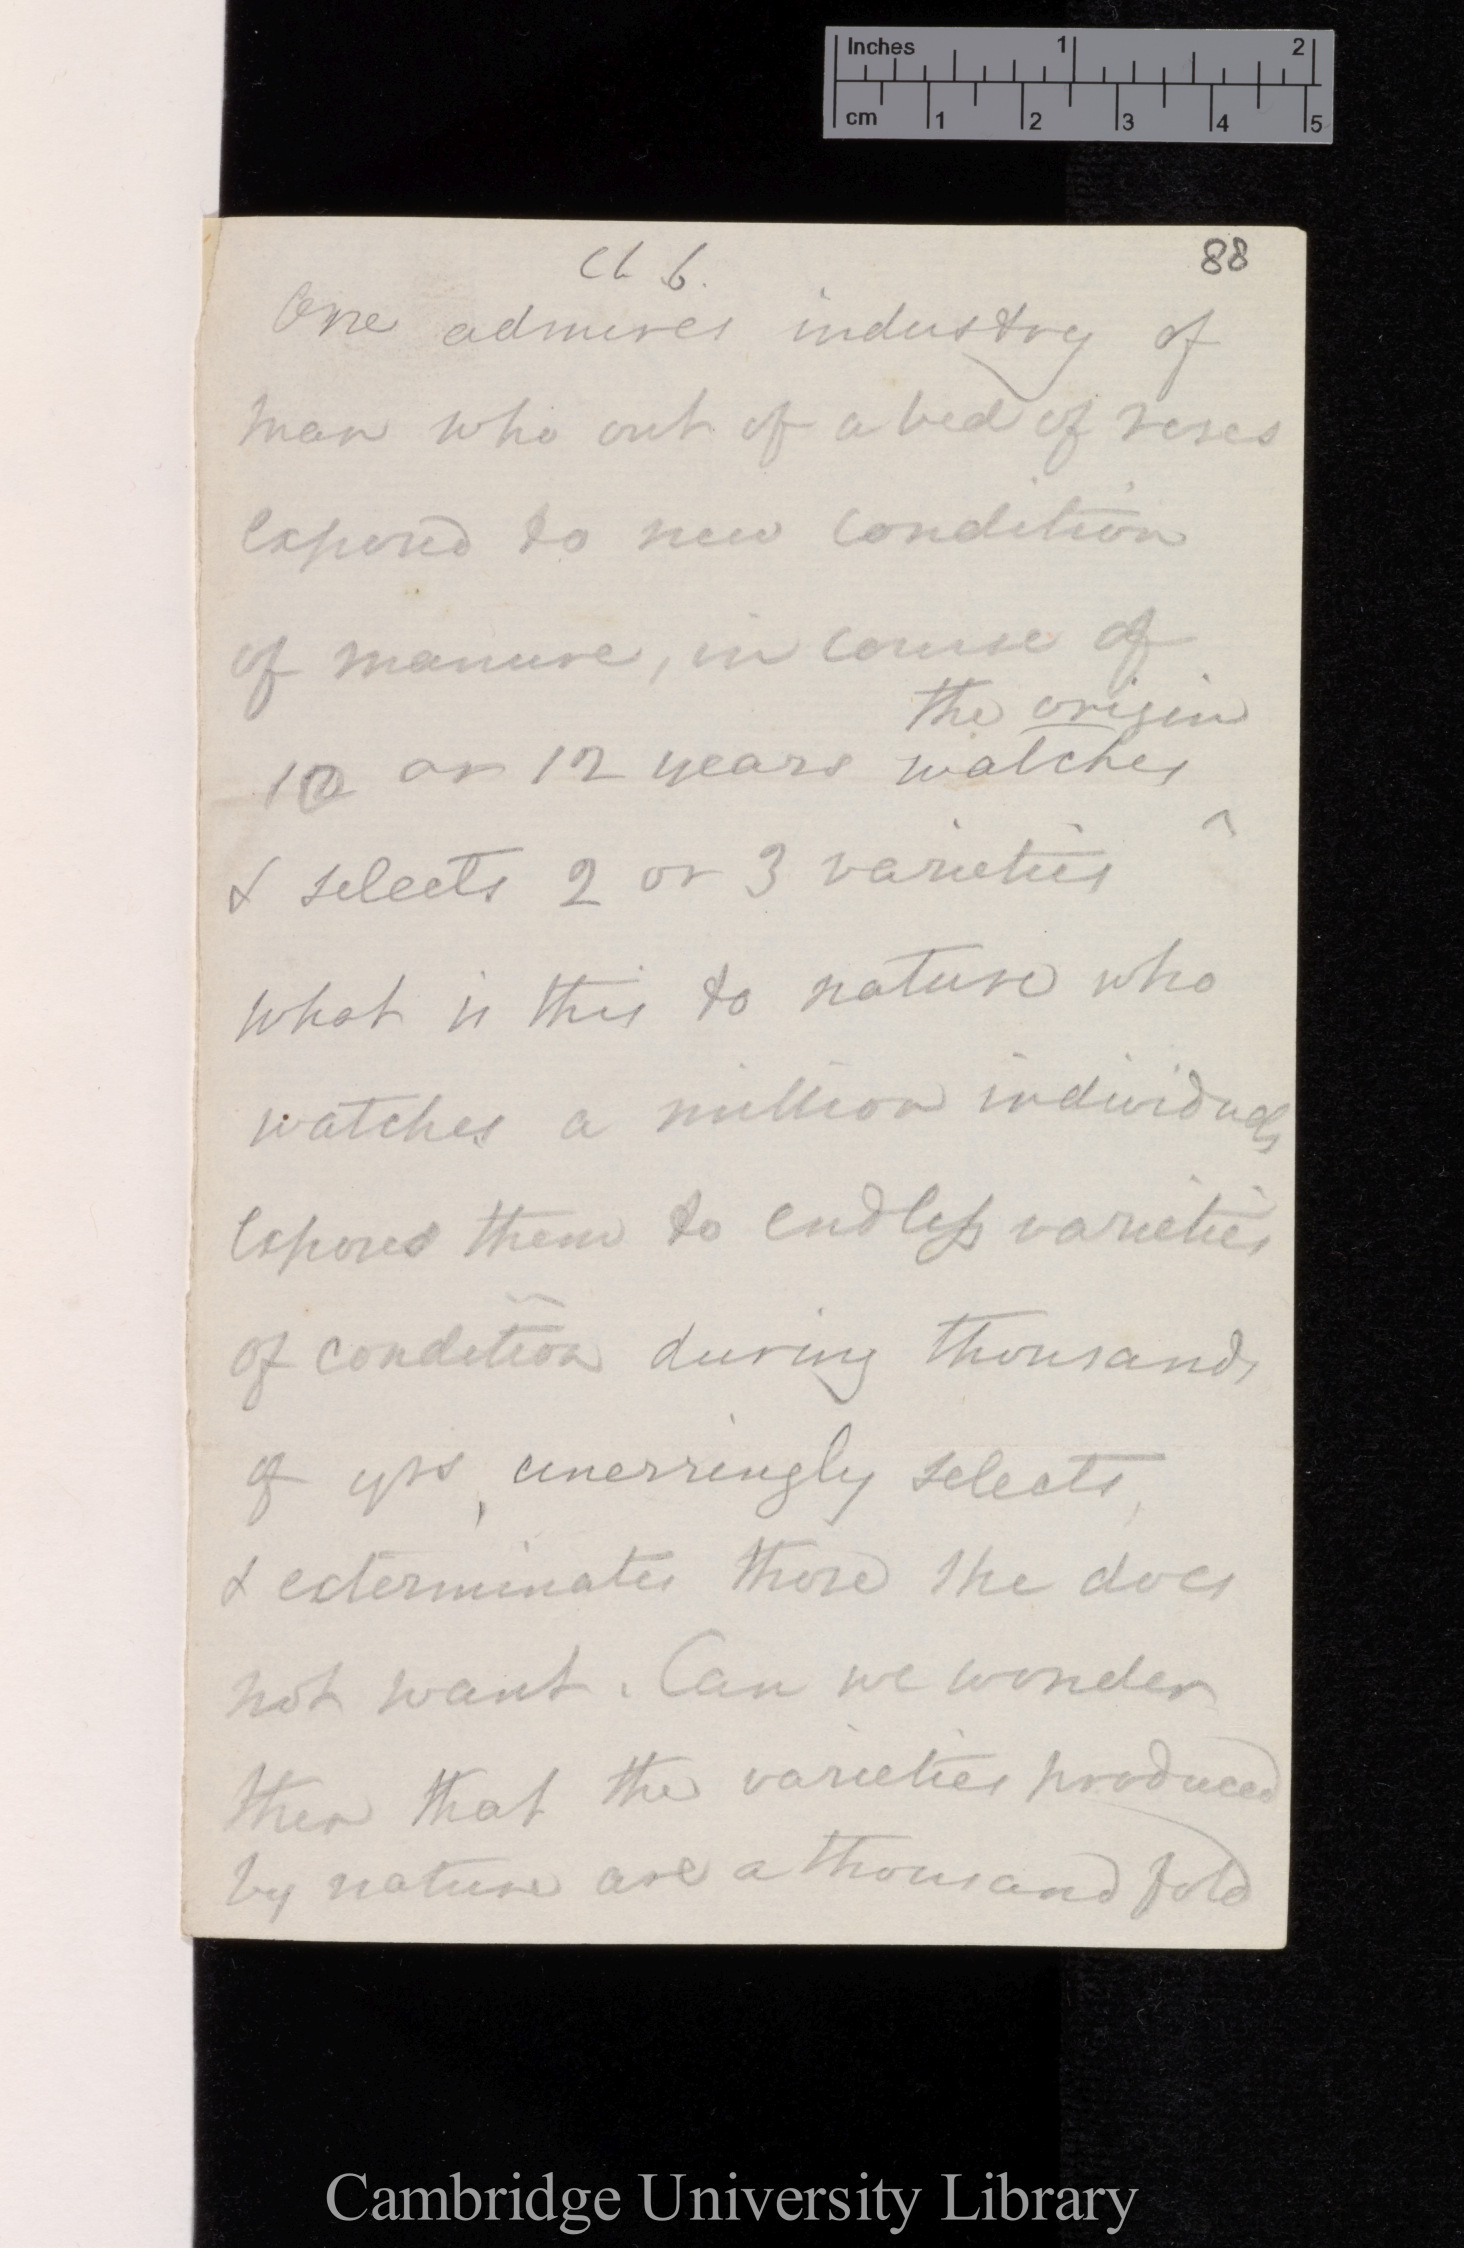 Inches 1 2
cm 1 2 3 4 5
88
Ch 6.
One admires industry of
man who out of a bed of roses
exposed to new condition
of manure, in course of
the origin
10 or 12 years watches ^
& selects 2 or 3 varieties
what is this to nature who
watches a million individuals
exposes them to endless varieties
of condition during thousands
of yrs, unerringly selects,
& exterminates those she does
not want. Can we wonder
then that the varieties produced
by nature are a thousand fold
Cambridge University Library